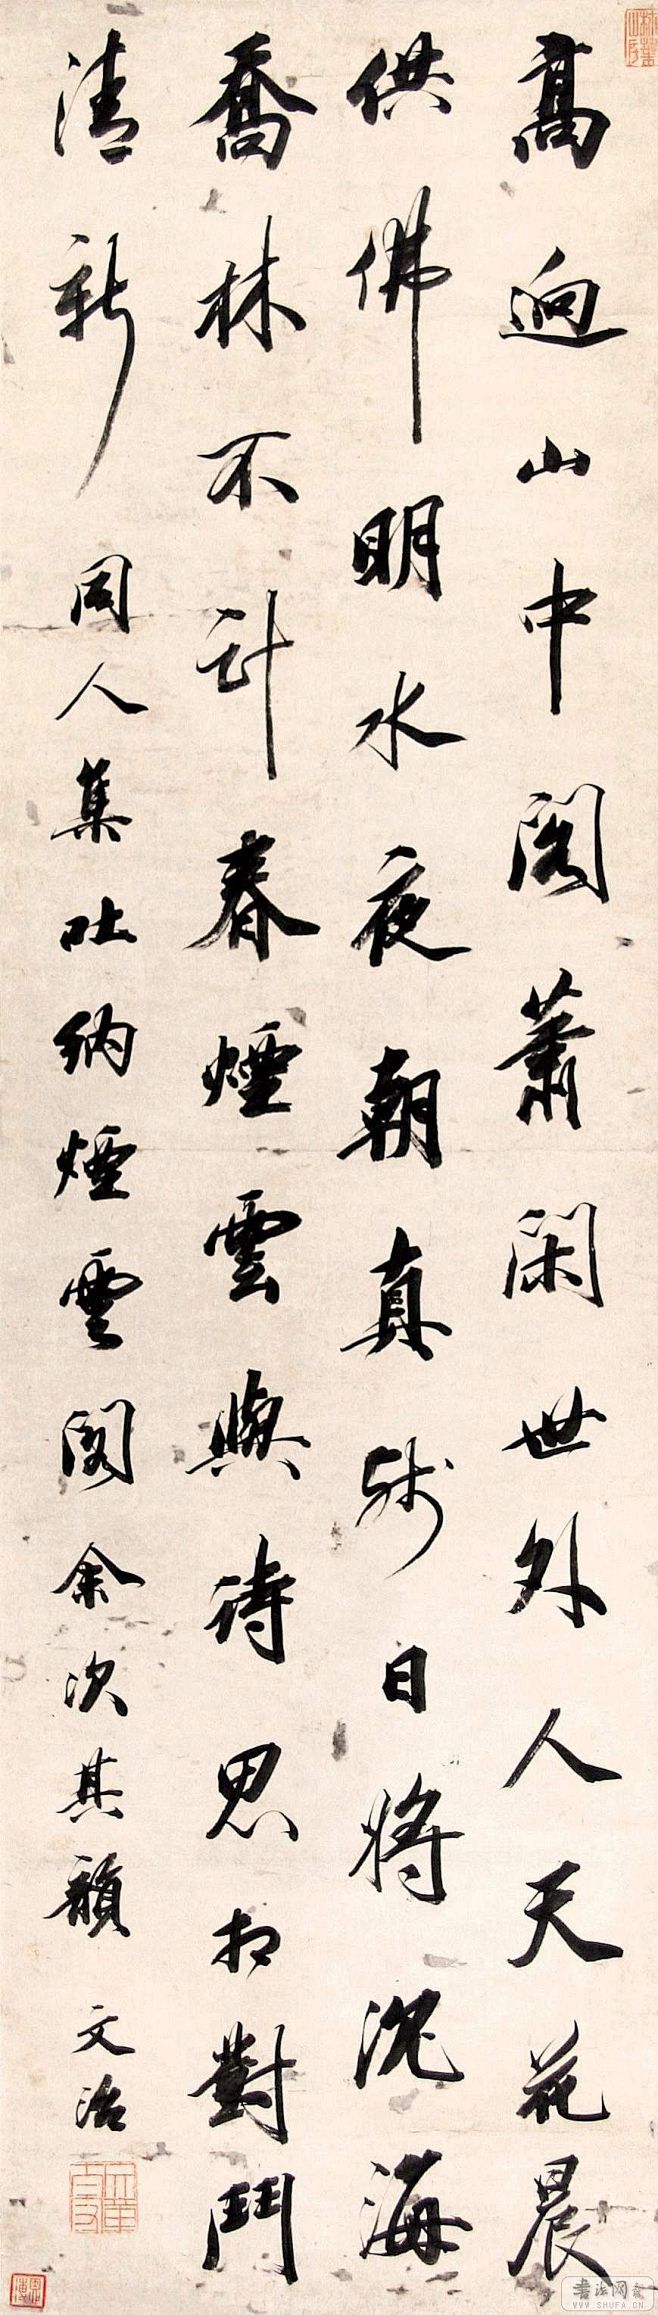 高迥山中閣蕭閑世外人天花晨
供佛明水夜朝真殘日將沉海
喬林不計春煙雲與詩思相對鬥
清新 同人集吐納煙雲閣余次其韻 文治
WWW.SHUFA.CN